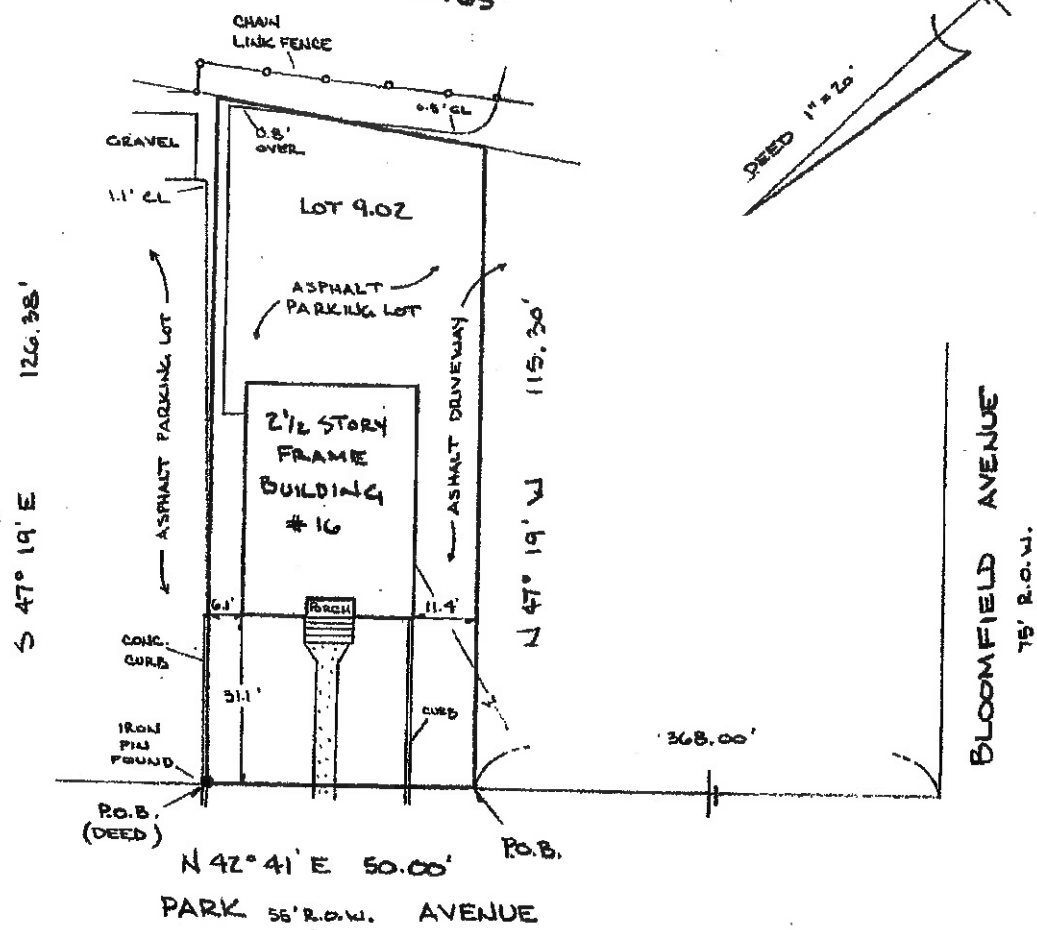 CHAIN
LINK FENCE
0.8' CL
0.8'
OVER
GRAVEL
1.1' CL
LOT 9.02
DEED 1" = 20'
ASPHALT
PARKING LOT
ASPHALT PARKING LOT
ASHALT DRIVEWAY
S 47° 19' E 126.38'
N 47° 19' W 115.30'
2 1/2 STORY
FRAME
BUILDING
# 16
PORCH
6.1'
11.4'
CONC.
CURB
31.1'
CURB
IRON
PIN
FOUND
368.00'
BLOOMFIELD AVENUE
75' R.O.W.
P.O.B.
(DEED)
P.O.B.
N 42° 41' E 50.00'
PARK 55' R.O.W. AVENUE